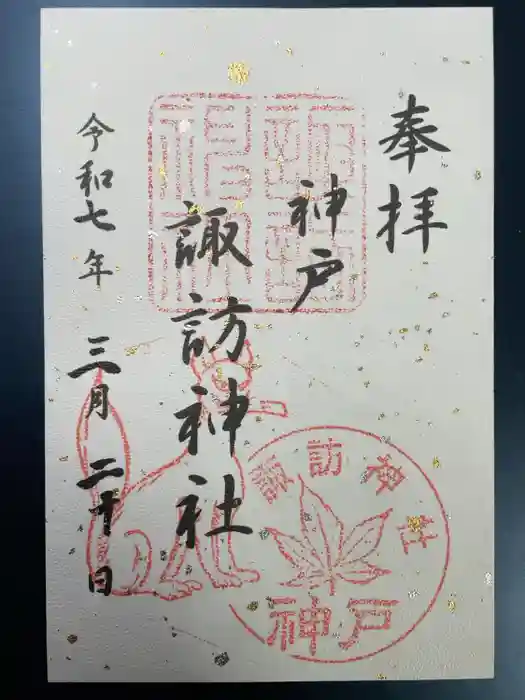 奉拝
神戸
諏訪神社
令和七年 三月 二十日
諏訪神社
神戸